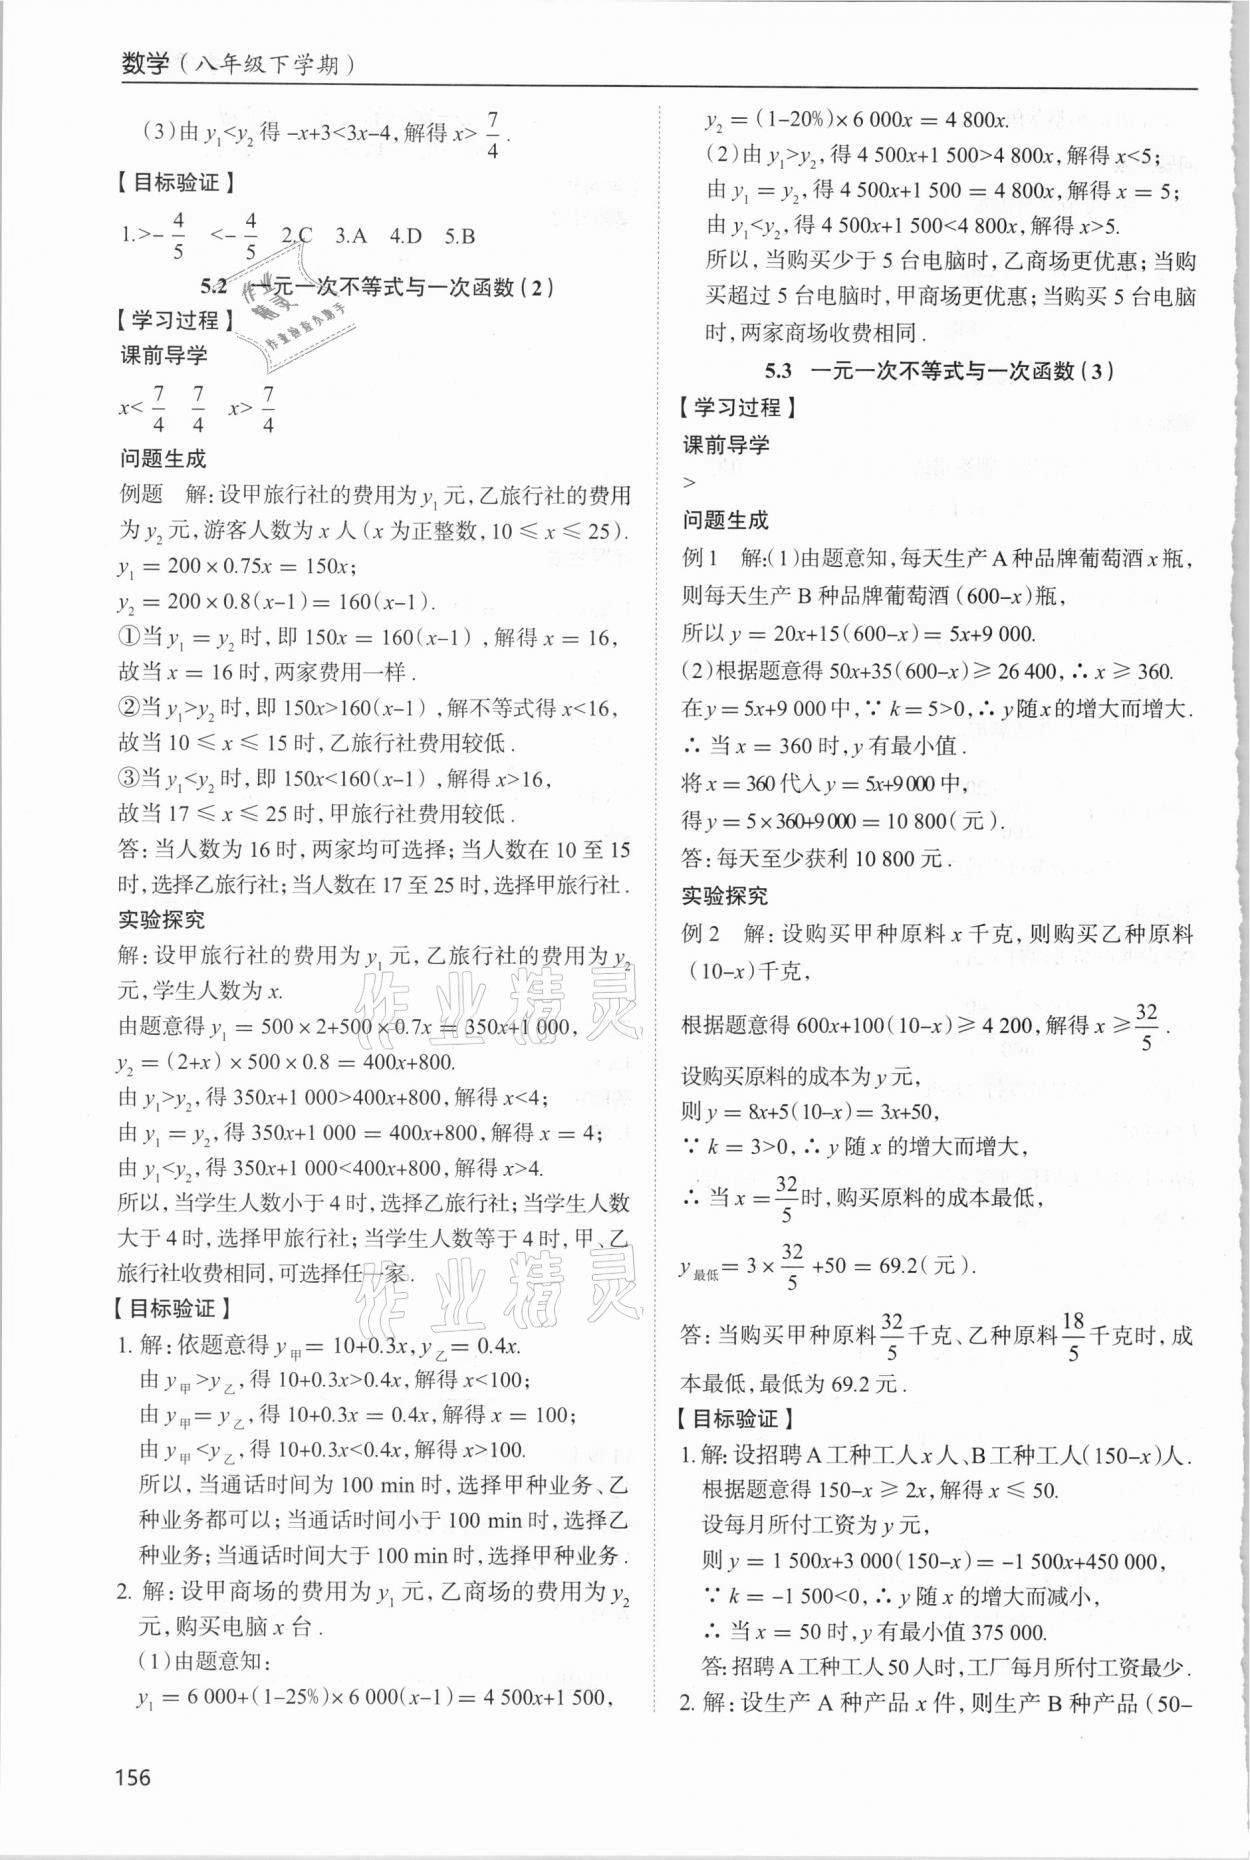 数学(八年级下学期)
(3)由 y₁<y₂ 得 -x+3<3x-4,解得 x>7/4.
【目标验证】
1.>-4/5 <-4/5 2.C 3.A 4.D 5.B
5.2 一元一次不等式与一次函数(2)
【学习过程】
课前导学
x<7/4 7/4 x>7/4
问题生成
例题 解:设甲旅行社的费用为 y₁ 元,乙旅行社的费用
为 y₂ 元,游客人数为 x 人(x 为正整数,10 ≤ x ≤ 25).
y₁ = 200×0.75x = 150x;
y₂ = 200×0.8(x-1)= 160(x-1).
①当 y₁ = y₂ 时,即 150x = 160(x-1),解得 x = 16,
故当 x = 16 时,两家费用一样.
②当 y₁>y₂ 时,即 150x>160(x-1),解不等式得 x<16,
故当 10 ≤ x ≤ 15 时,乙旅行社费用较低.
③当 y₁<y₂ 时,即 150x<160(x-1),解得 x>16,
故当 17 ≤ x ≤ 25 时,甲旅行社费用较低.
答:当人数为 16 时,两家均可选择;当人数在 10 至 15
时,选择乙旅行社;当人数在 17 至 25 时,选择甲旅行社.
实验探究
解:设甲旅行社的费用为 y₁ 元,乙旅行社的费用为 y₂
元,学生人数为 x.
由题意得 y₁ = 500×2+500×0.7x = 350x+1 000,
y₂ =(2+x)×500×0.8 = 400x+800.
由 y₁>y₂,得 350x+1 000>400x+800,解得 x<4;
由 y₁ = y₂,得 350x+1 000 = 400x+800,解得 x = 4;
由 y₁<y₂,得 350x+1 000<400x+800,解得 x>4.
所以,当学生人数小于 4 时,选择乙旅行社;当学生人数
大于 4 时,选择甲旅行社;当学生人数等于 4 时,甲、乙
旅行社收费相同,可选择任一家.
【目标验证】
1. 解:依题意得 y甲= 10+0.3x,y乙= 0.4x.
由 y甲>y乙,得 10+0.3x>0.4x,解得 x<100;
由 y甲= y乙,得 10+0.3x = 0.4x,解得 x = 100;
由 y甲<y乙,得 10+0.3x<0.4x,解得 x>100.
所以,当通话时间为 100 min 时,选择甲种业务、乙
种业务都可以;当通话时间小于 100 min 时,选择乙
种业务;当通话时间大于 100 min 时,选择甲种业务.
2. 解:设甲商场的费用为 y₁ 元,乙商场的费用为 y₂
元,购买电脑 x 台.
(1)由题意知:
y₁ = 6 000+(1-25%)×6 000(x-1)= 4 500x+1 500,
y₂ =(1-20%)×6 000x = 4 800x.
(2)由 y₁>y₂,得 4 500x+1 500>4 800x,解得 x<5;
由 y₁ = y₂,得 4 500x+1 500 = 4 800x,解得 x = 5;
由 y₁<y₂,得 4 500x+1 500<4 800x,解得 x>5.
所以,当购买少于 5 台电脑时,乙商场更优惠;当购
买超过 5 台电脑时,甲商场更优惠;当购买 5 台电脑
时,两家商场收费相同.
5.3 一元一次不等式与一次函数(3)
【学习过程】
课前导学
>
问题生成
例1 解:(1)由题意知,每天生产 A 种品牌葡萄酒 x 瓶,
则每天生产 B 种品牌葡萄酒(600-x)瓶,
所以 y = 20x+15(600-x)= 5x+9 000.
(2)根据题意得 50x+35(600-x)≥ 26 400,∴ x ≥ 360.
在 y = 5x+9 000 中,∵ k = 5>0,∴ y 随 x 的增大而增大.
∴ 当 x = 360 时,y 有最小值.
将 x = 360 代入 y = 5x+9 000 中,
得 y = 5×360+9 000 = 10 800(元).
答:每天至少获利 10 800 元.
实验探究
例2 解:设购买甲种原料 x 千克,则购买乙种原料
(10-x)千克,
根据题意得 600x+100(10-x)≥ 4 200,解得 x ≥32/5.
设购买原料的成本为 y 元,
则 y = 8x+5(10-x)= 3x+50,
∵ k = 3>0,∴ y 随 x 的增大而增大,
∴ 当 x =32/5时,购买原料的成本最低,
y最低= 3×32/5+50 = 69.2(元).
答:当购买甲种原料32/5千克、乙种原料18/5千克时,成
本最低,最低为 69.2 元.
【目标验证】
1. 解:设招聘 A 工种工人 x 人、B 工种工人(150-x)人.
根据题意得 150-x ≥ 2x,解得 x ≤ 50.
设每月所付工资为 y 元,
则 y = 1 500x+3 000(150-x)= -1 500x+450 000,
∵ k = -1 500<0,∴ y 随 x 的增大而减小,
∴ 当 x = 50 时,y 有最小值 375 000.
答:招聘 A 工种工人 50 人时,工厂每月所付工资最少.
2. 解:设生产 A 种产品 x 件,则生产 B 种产品(50-
156
作业精灵
作业检查小助手
作业精灵
作业精灵